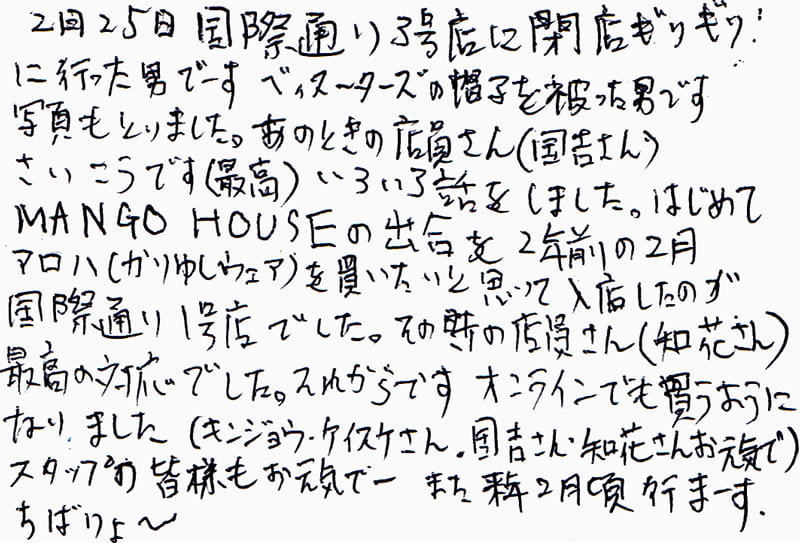 2回25日国際通り3号店に閉店ぎりぎり!
に行った男でーす ベイスターズの帽子を被った男です
写真もとりました。あのときの店員さん(国吉さん)
さいこうです(最高)いろいろ話をしました。はじめて
MANGO HOUSEの出合を2年前の2月
アロハ(かりゆしウェア)を買いたいと思って入店したのが
国際通り1号店でした。その時の店員さん(知花さん)
最高の対応でした。それからです オンラインでも買うように
なりました(キンジョウ・ケイスケさん.国吉さん・知花さんお元気で)
スタップの皆様もお元気でー また来年2月頃行まーす.
ちばりょ〜